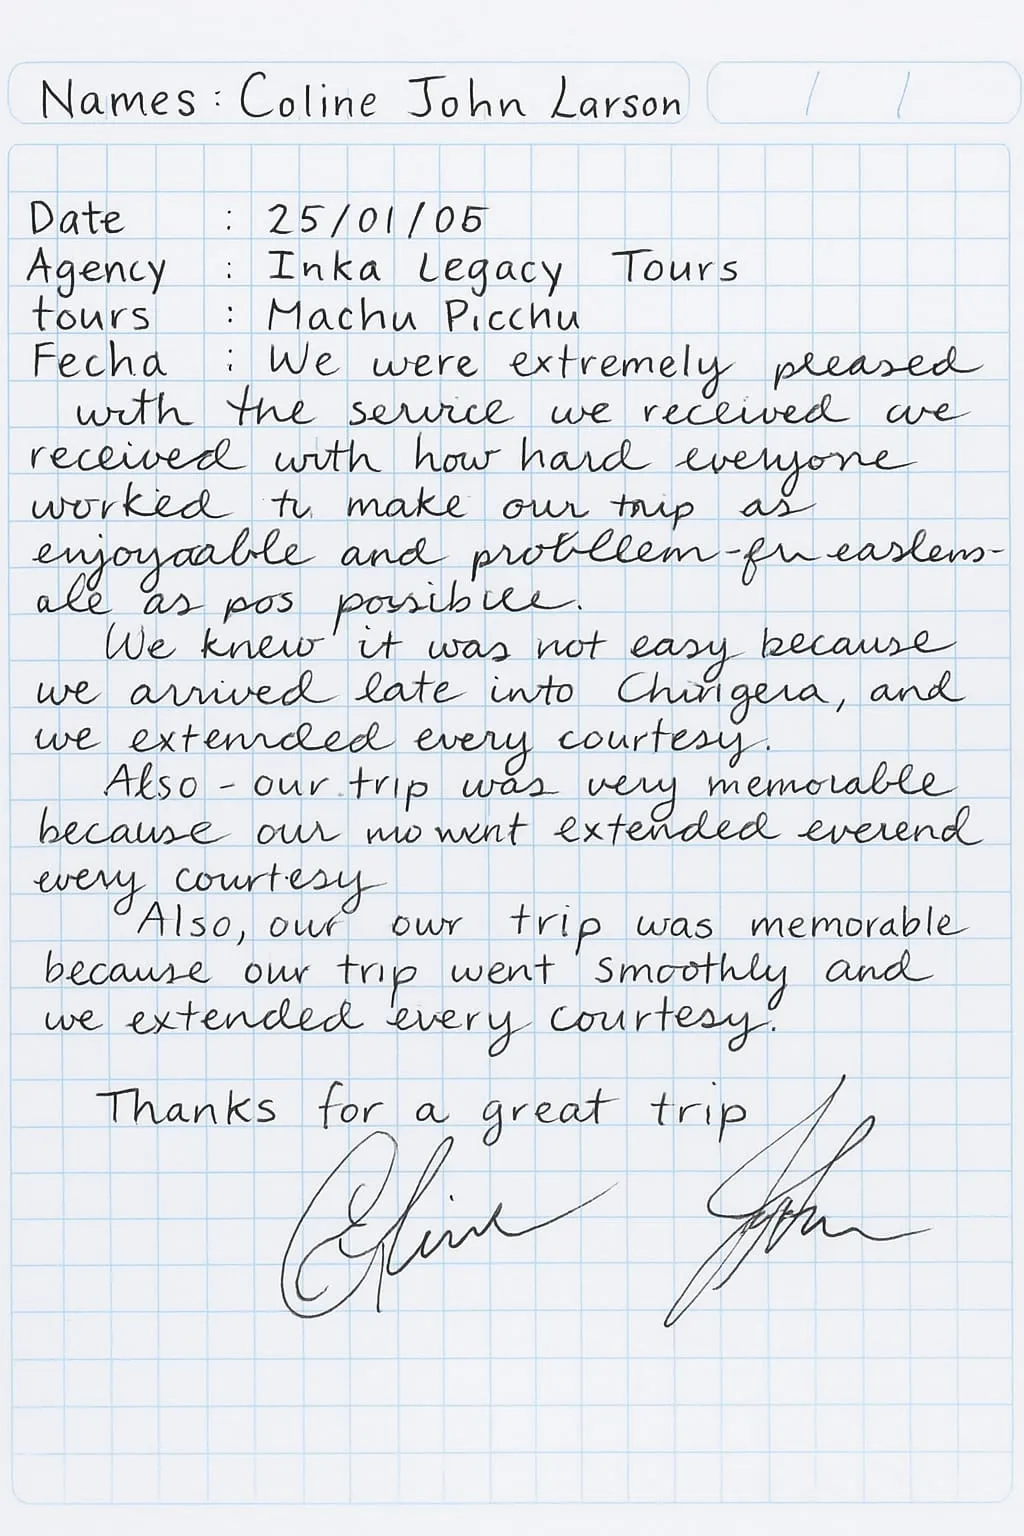 Names: Coline John Larson / /
Date : 25/01/05
Agency : Inka Legacy Tours
tours : Machu Picchu
Fecha : We were extremely pleased
with the service we received we
received with how hard everyone
worked to make our trip as
enjoyaable and probllem-
ale as pos possibile.
We knew it was not easy because
we arrived late into Chirigera, and
we extemded every courtesy.
Also - our trip was very memorable
because our extended everend
every courtesy
Also, our our trip was memorable
because our trip went smoothly and
we extended every courtesy.
Thanks for a great trip
Coline John